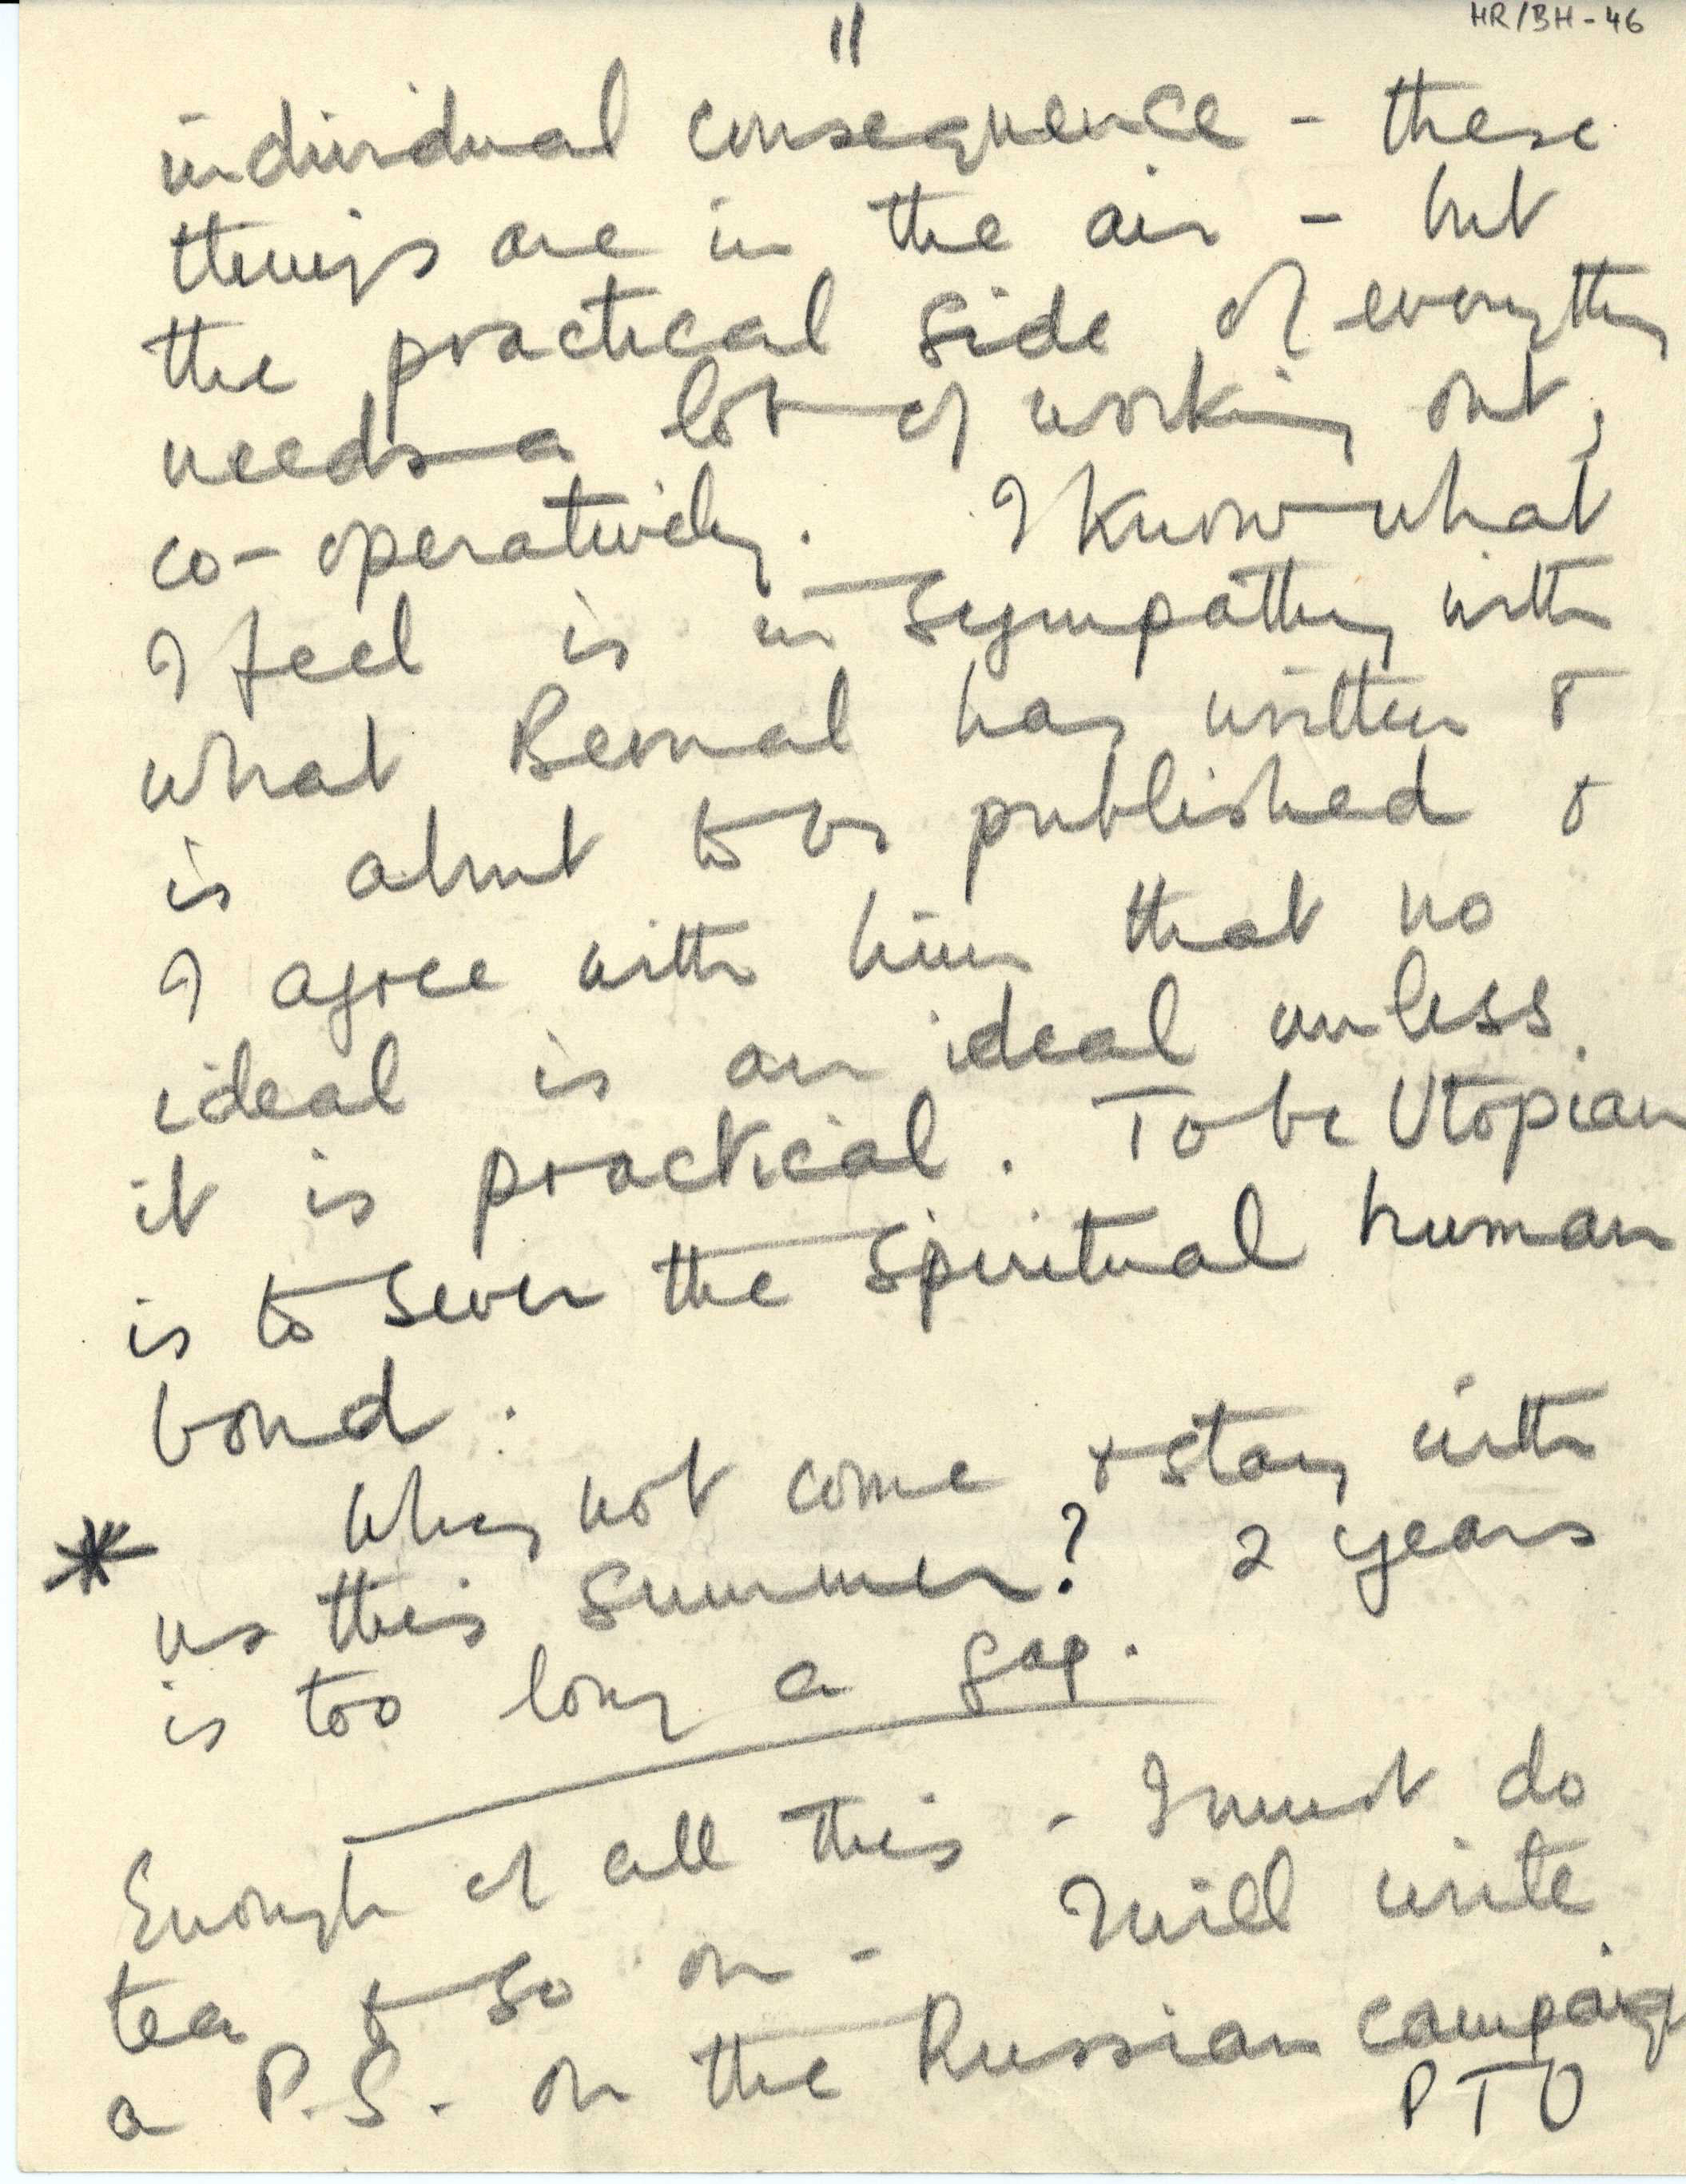 11
HR/BH-46
individual consequence - these
things are in the air - but
the practical side of everything
needs a lot of working out,
co-operatively. I know what
I feel is in sympathy with
what Bernal has written &
is about to be published &
I agree with him that no
ideal is an ideal unless
it is practical. To be Utopian
is to sever the spiritual human
bond.
Why not come & stay with
* us this summer? 2 years
is too long a gap.
Enough of all this - I must do
tea & so on - I will write
a P.S. on the Russian campaig
PTO